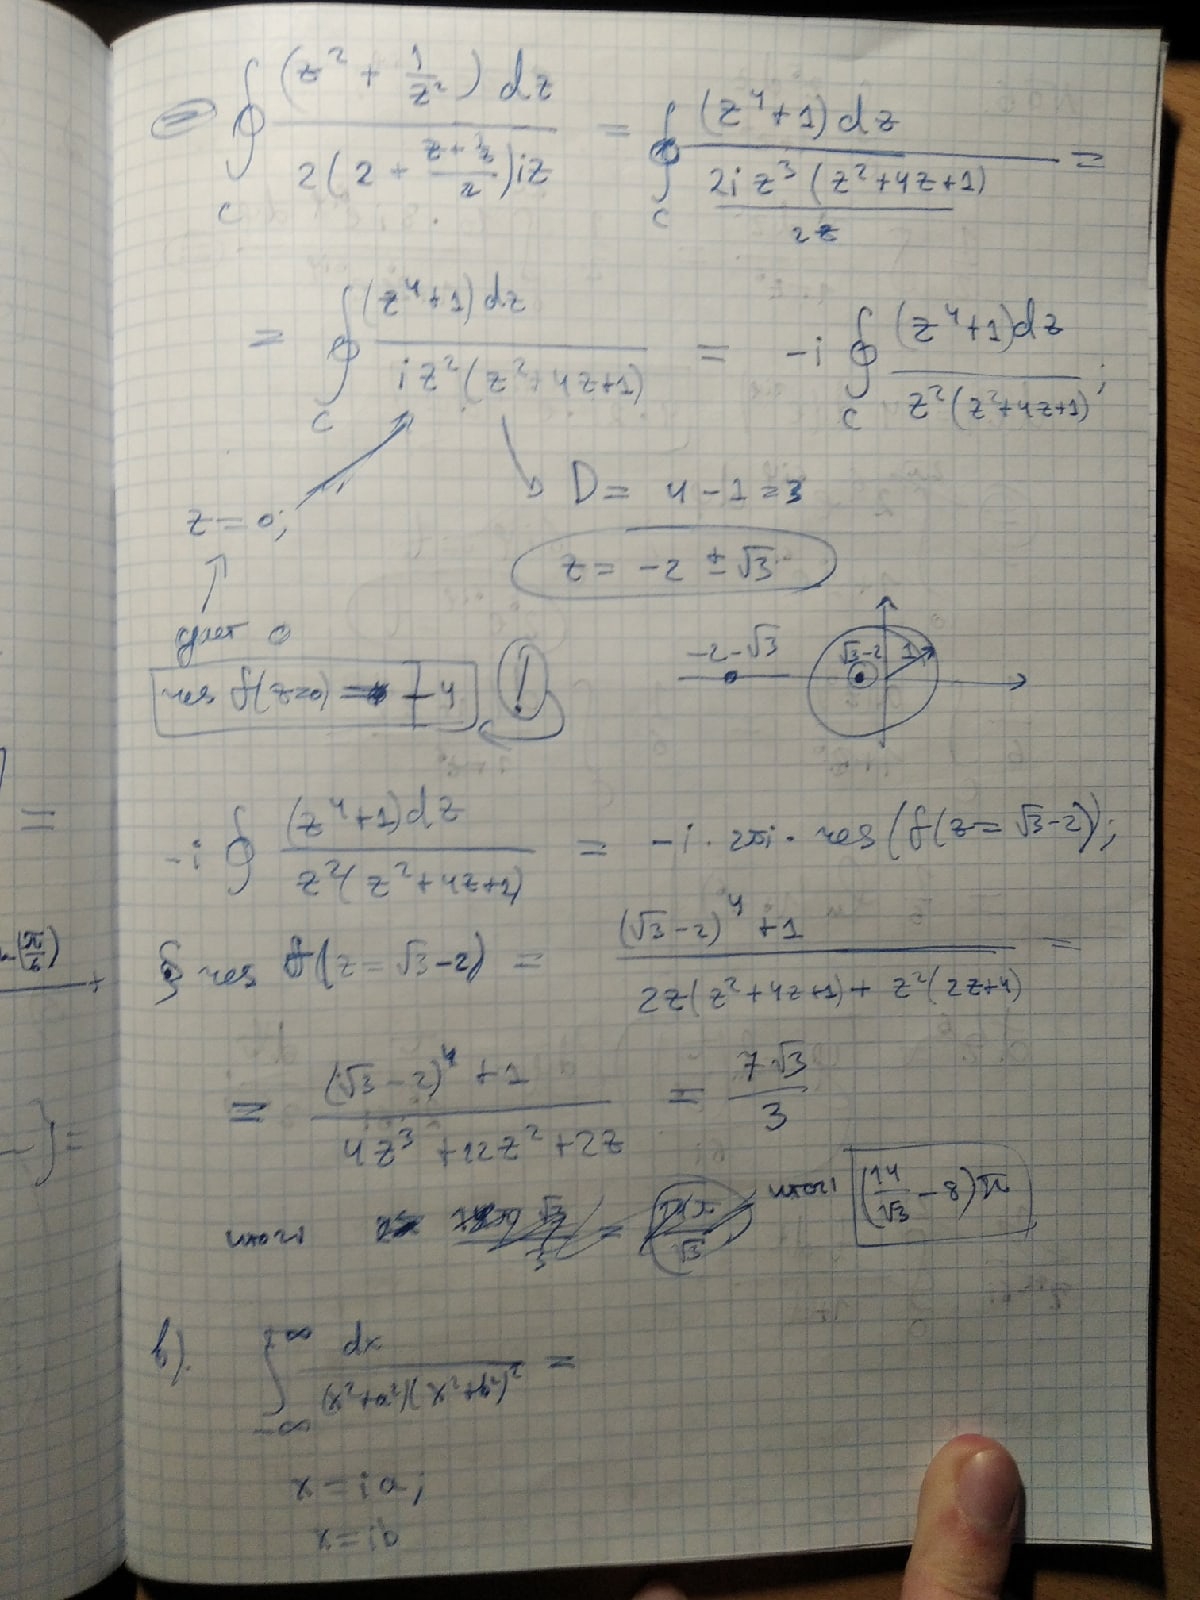 = ∮_C (z² + 1/z²) dz / 2(2 + (z + 1/z)/2) iz = ∮_C (z⁴+1) dz / (2i z³ (z²+4z+1) / 2z) =
= ∮_C (z⁴+1) dz / i z² (z²+4z+1) = -i ∮_C (z⁴+1) dz / z² (z²+4z+1) ;
D = 4 - 1 = 3
z = 0;
z = -2 ± √3
дает 0
-2-√3 √3-2 1
res f(z=0) = -4 !
-i ∮ (z⁴+1) dz / z² (z²+4z+1) = -i · 2πi · res (f(z = √3-2));
res f(z = √3-2) = ((√3-2)⁴ + 1) / (2z(z²+4z+1) + z²(2z+4)) =
= ((√3-2)⁴ + 1) / (4z³ + 12z² + 2z) = 7√3 / 3
итого итого (14/√3 - 8)π
в). ∫_{-∞}^{+∞} dx / (x²+a²)(x²+b²)² =
x = ia;
x = ib
=
(π/6)
+
=